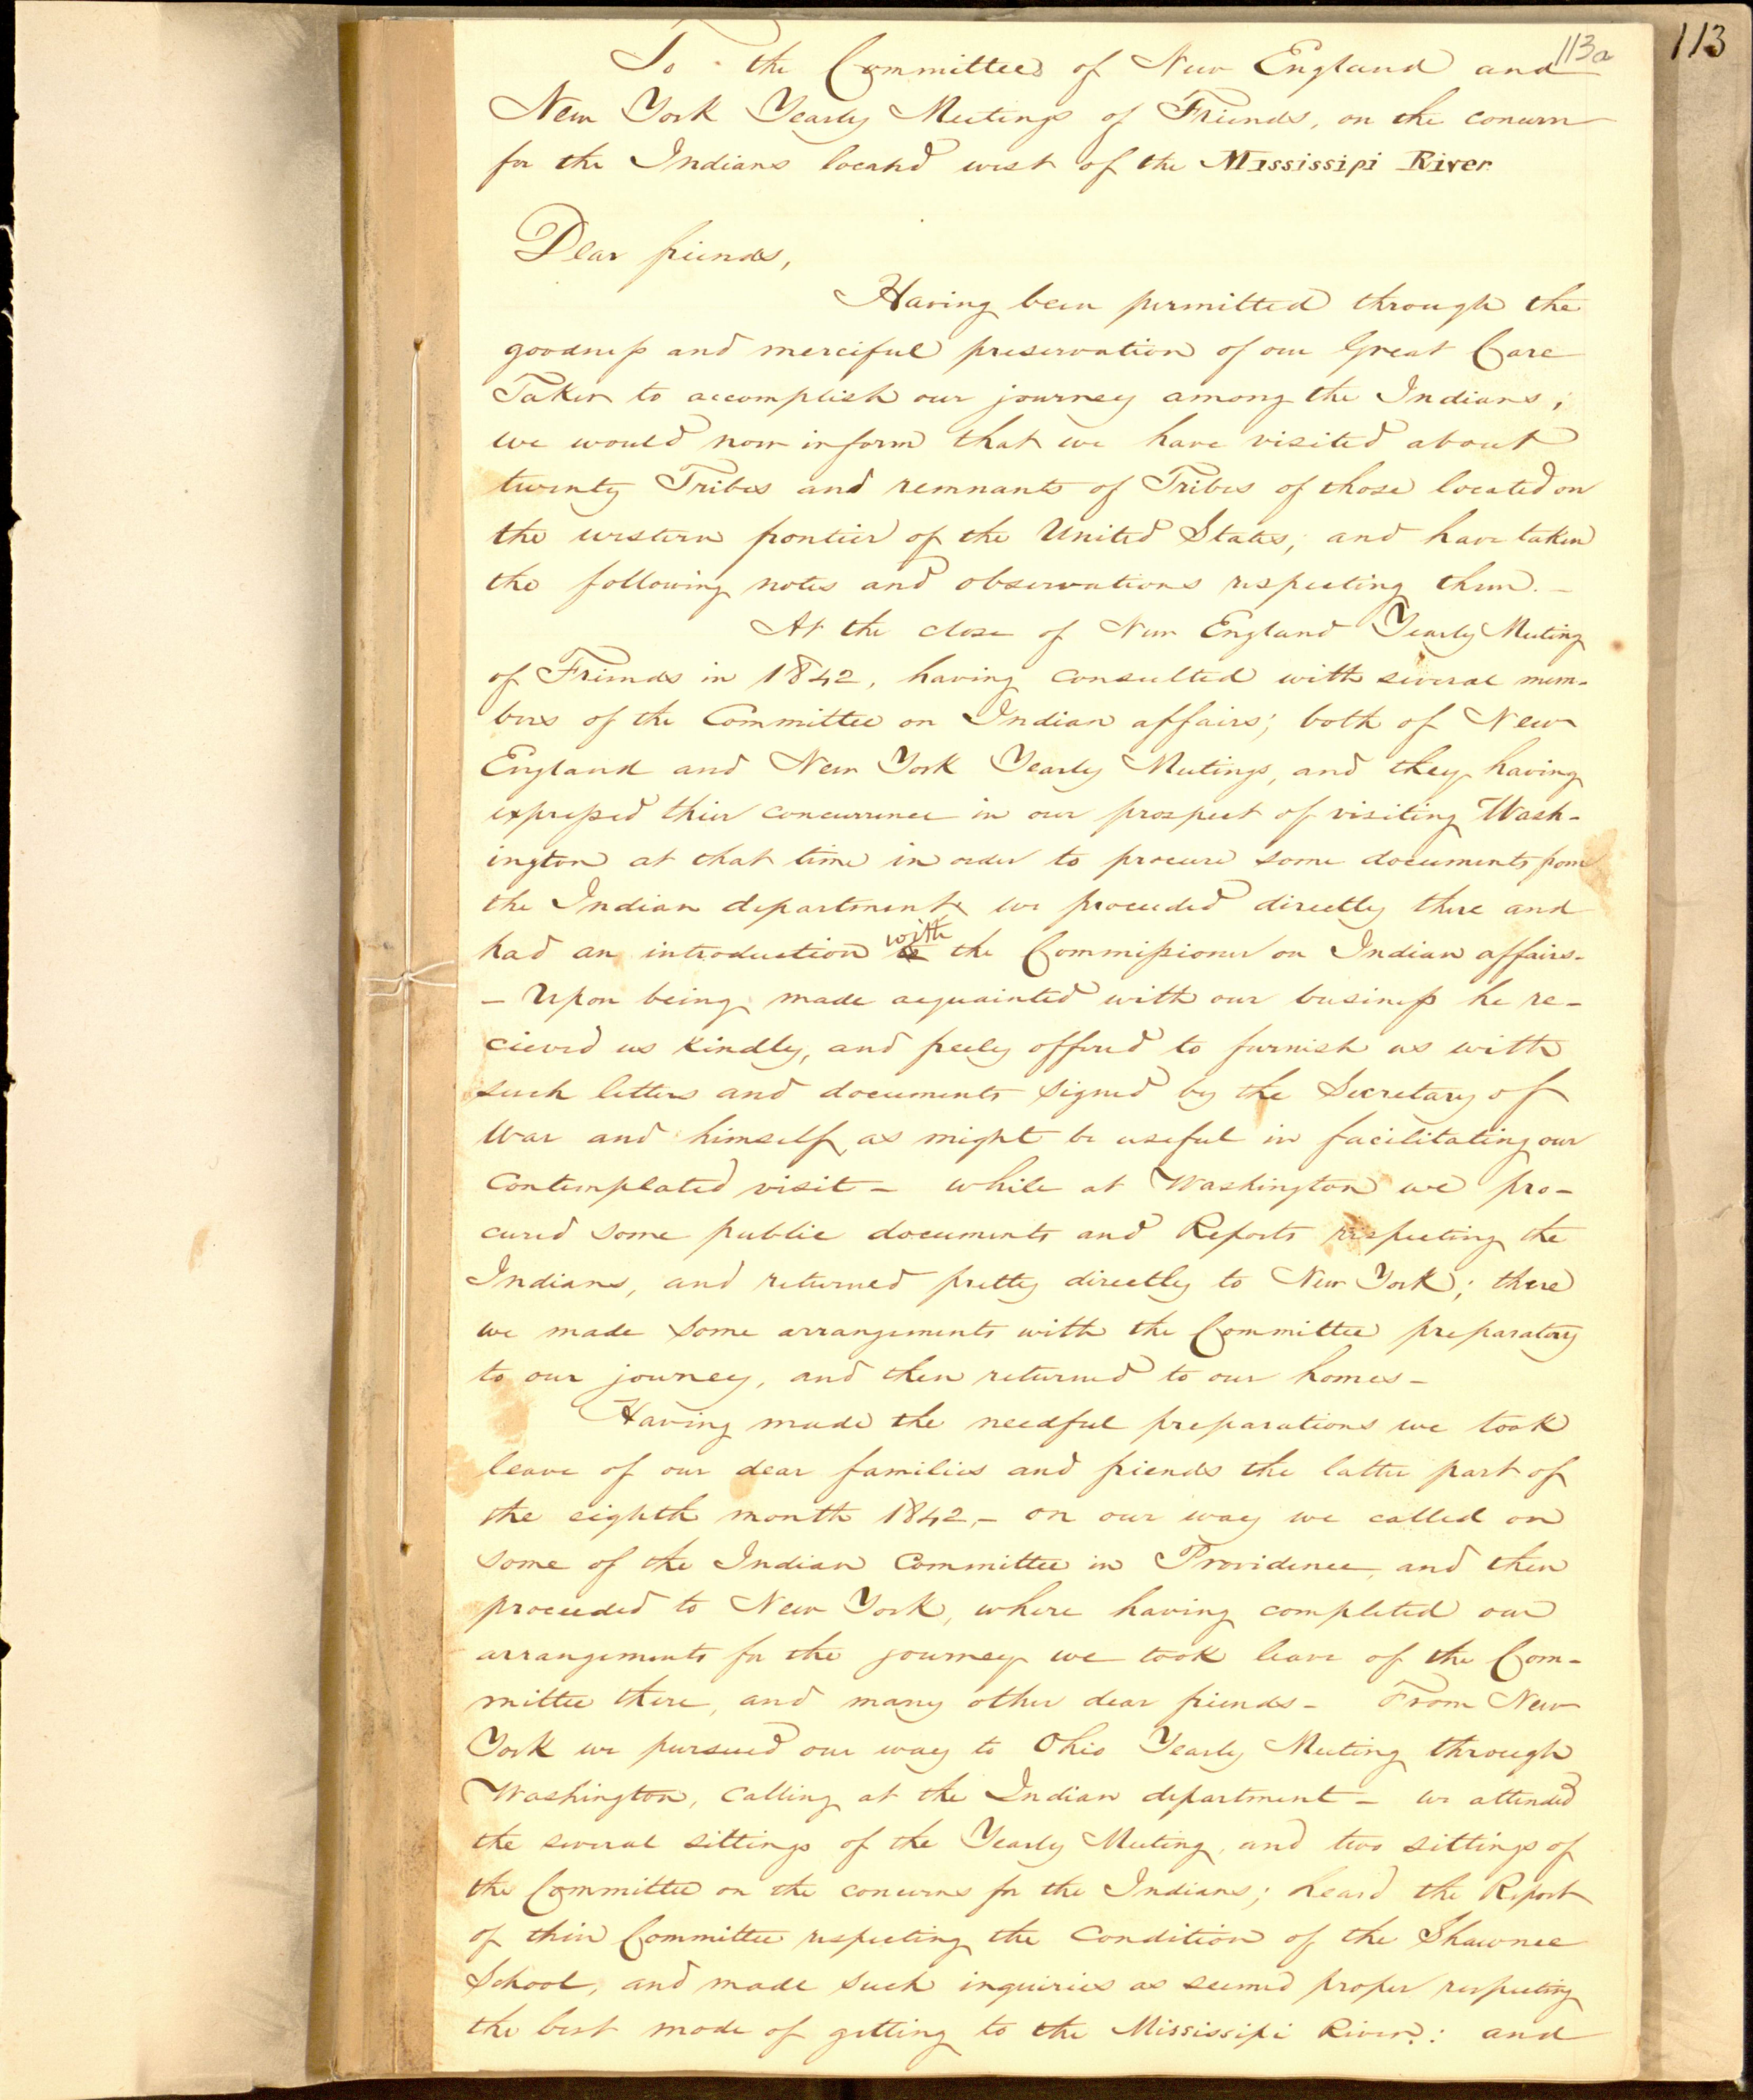 113
113a
To the Committees of New England and
New York Yearly Meetings of Friends, on the concern
for the Indians located west of the Mississipi River
Dear friends,
Having been permitted through the
goodness and merciful preservation of our Great Care
Taker to accomplish our journey among the Indians;
we would now inform that we have visited about
twenty Tribes and remnants of Tribes of those located on
the western frontier of the United States; and have taken
the following notes and observations respecting them. -
At the close of New England Yearly Meeting
of Friends in 1842, having consulted with several mem-
bers of the Committee on Indian affairs; both of New
England and New York Yearly Meetings, and they having
expressed their concurrence in our prospect of visiting Wash-
ington at that time in order to procure some documents from
the Indian department we proceeded directly there and
had an introduction with the Commissioner on Indian affairs.
- Upon being made acquainted with our business he re-
cieved us kindly, and freely offered to furnish us with
such letters and documents signed by the Secretary of
War and himself as might be useful in facilitating our
contemplated visit - while at Washington we pro-
cured some public documents and Reports respecting the
Indians, and returned pretty directly to New York; there
we made some arrangements with the Committee preparatory
to our journey, and then returned to our homes -
Having made the needful preparations we took
leave of our dear families and friends the latter part of
the eighth month 1842, - on our way we called on
some of the Indian Committee in Providence, and then
proceeded to New York, where having completed our
arrangements for the journey we took leave of the Com-
mittee there, and many other dear friends - From New
York we pursued our way to Ohio Yearly Meeting through
Washington, calling at the Indian department - we attended
the several sittings of the Yearly Meeting, and two sittings of
the Committee on the concerns for the Indians; heard the Report
of their Committee respecting the Condition of the Shawnee
School, and made such inquiries as seemed proper respecting
the best mode of getting to the Mississipi River: and